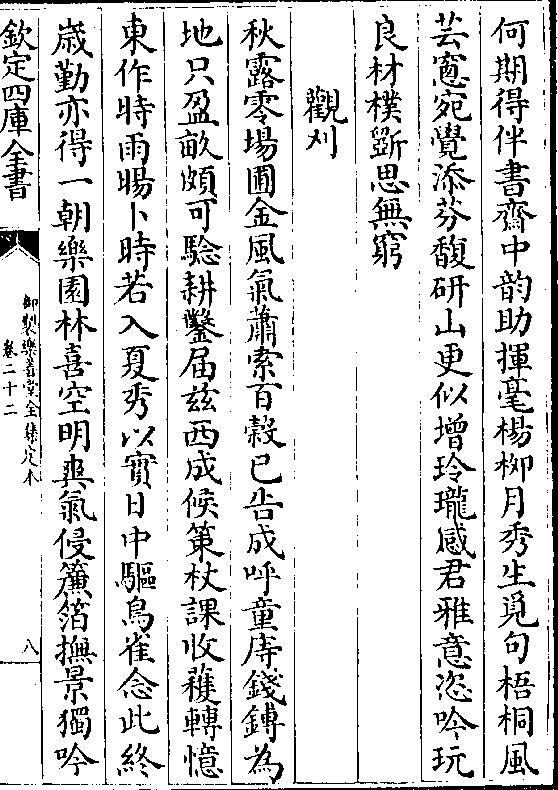 何期得伴書齋中韵助揮毫楊柳月秀生覓句梧桐風
芸窻宛覺添芬馥研山更似增玲瓏感君雅意恣吟玩
良材樸斵思無窮
觀刈
秋露零場圃金風氣蕭索百穀已告成呼童庤錢鎛為
地只盈畝頗可驗耕鑿届兹西成候策杖課收穫轉憶
東作時雨暘卜時若入夏秀以實日中驅鳥雀念此終
歳勤亦得一朝樂園林喜空明爽氣侵簾箔撫景獨吟
欽定四庫全書
御製樂善堂全集定本
卷二十二
八